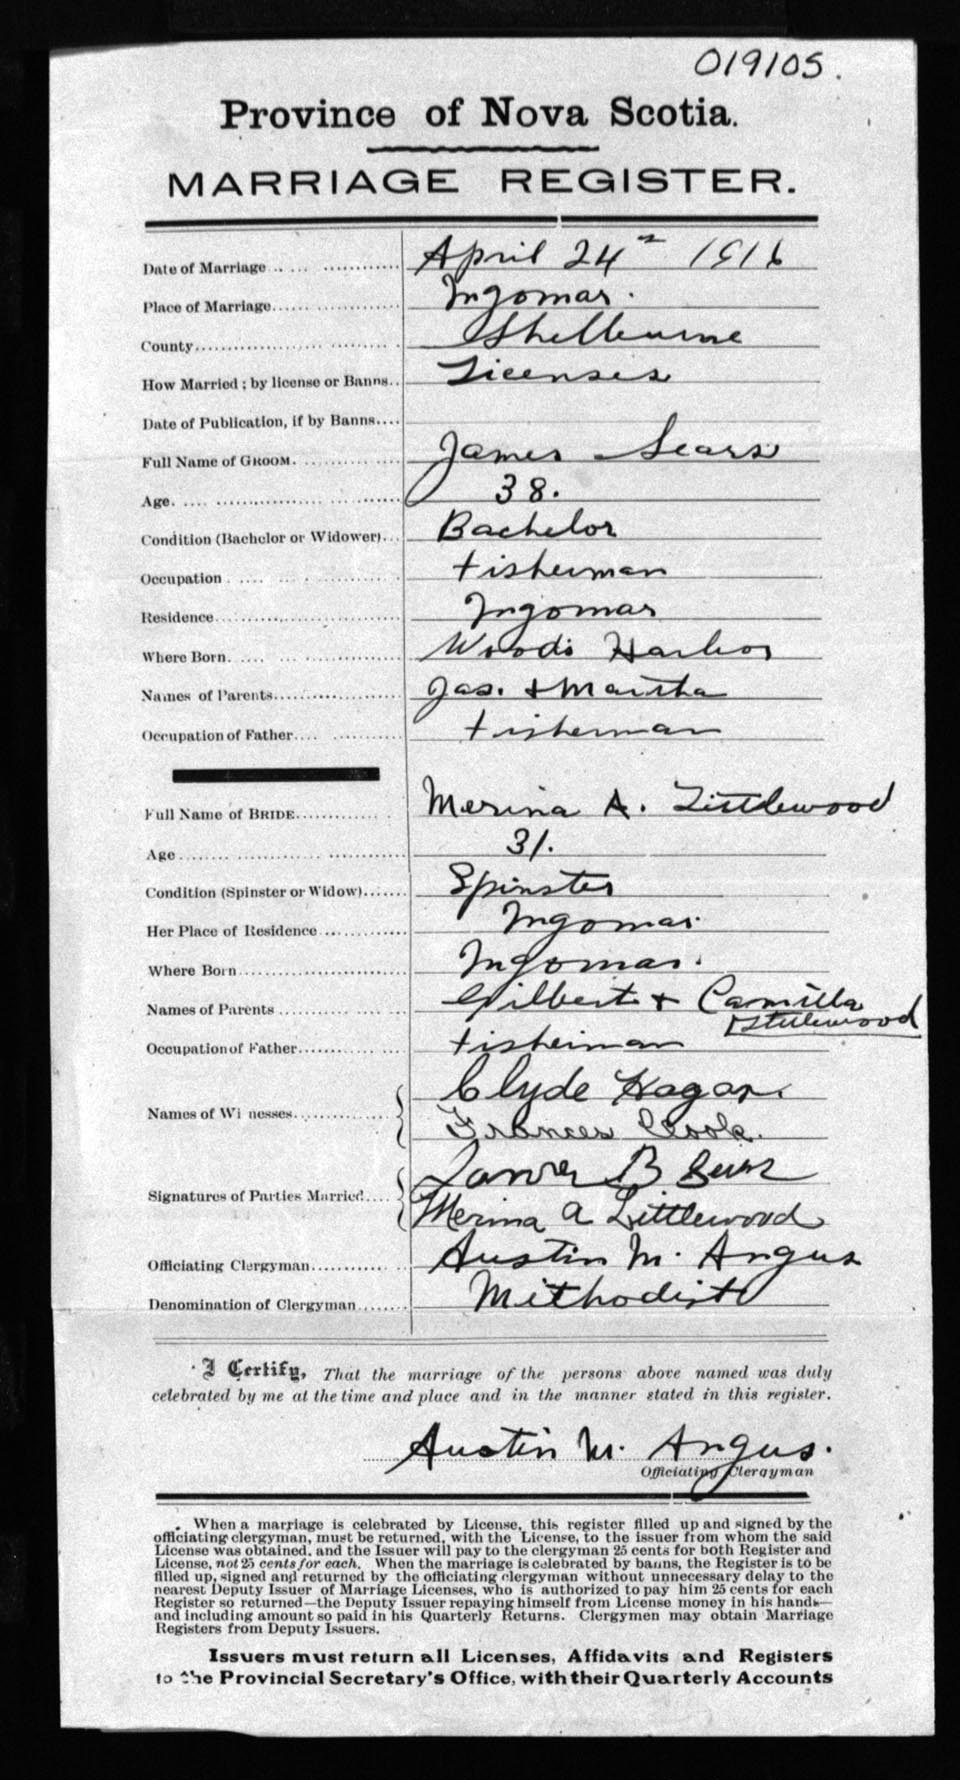 019105.
Province of Nova Scotia.
MARRIAGE REGISTER.
Date of Marriage April 24th 1916
Place of Marriage Ingomar.
County Shelburne
How Married; by license or Banns Licenses
Date of Publication, if by Banns
Full Name of GROOM. James Sears
Age. 38.
Condition (Bachelor or Widower) Bachelor
Occupation Fisherman
Residence Ingomar
Where Born. Woods Harbor
Names of Parents Jas. & Martha
Occupation of Father Fisherman
Full Name of BRIDE Merina A. Littlewood
Age 31.
Condition (Spinster or Widow) Spinster
Her Place of Residence Ingomar
Where Born Ingomar.
Names of Parents Gilbert & Camilla
Littlewood
Occupation of Father Fisherman
Clyde Hagar.
Names of Wi nesses
Frances Cook.
B
Signatures of Parties Married
Merina A Littlewood
Officiating Clergyman Austin M. Angus
Denomination of Clergyman Methodist
I Certify, That the marriage of the persons above named was duly
celebrated by me at the time and place and in the manner stated in this register.
Austin M. Angus.
Officiating Clergyman
When a marriage is celebrated by License, this register filled up and signed by the
officiating clergyman, must be returned, with the License, to the issuer from whom the said
License was obtained, and the Issuer will pay to the clergyman 25 cents for both Register and
License, not 25 cents for each. When the marriage is celebrated by banns, the Register is to be
filled up, signed and returned by the officiating clergyman without unnecessary delay to the
nearest Deputy Issuer of Marriage Licenses, who is authorized to pay him 25 cents for each
Register so returned—the Deputy Issuer repaying himself from License money in his hands—
and including amount so paid in his Quarterly Returns. Clergymen may obtain Marriage
Registers from Deputy Issuers.
Issuers must return all Licenses, Affidavits and Registers
to the Provincial Secretary's Office, with their Quarterly Accounts